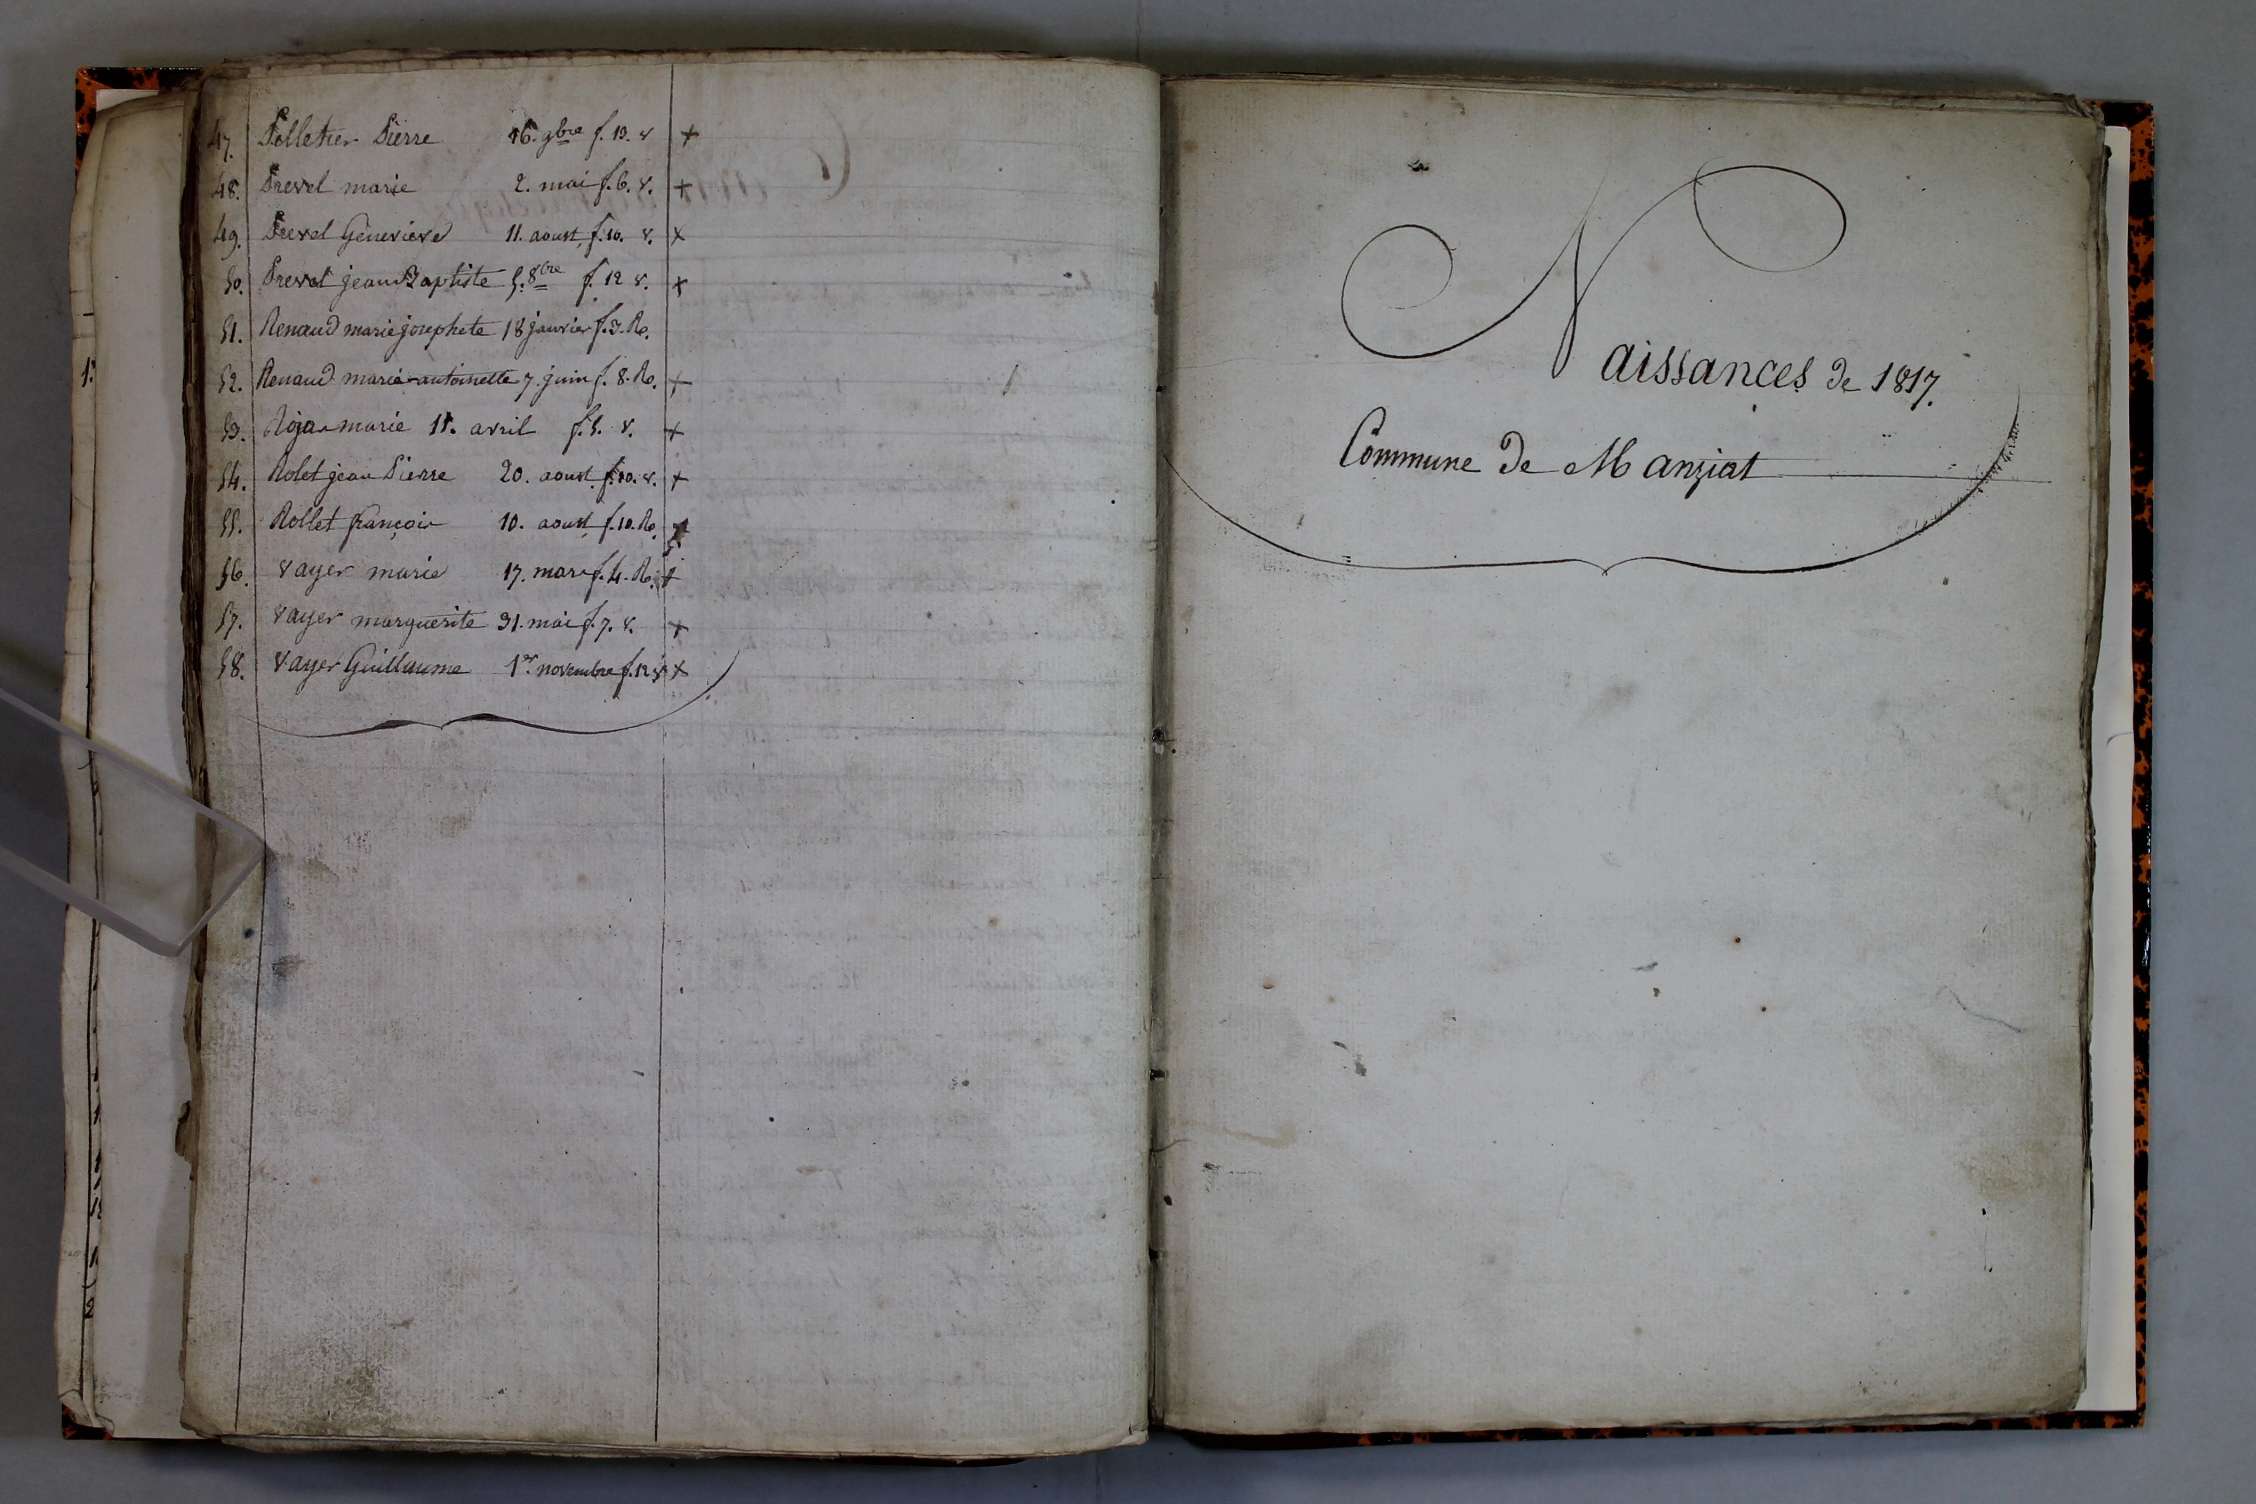 47. Pelletier Pierre 16. 9bre f. 13. v +
48. Prevel marie 2. mai f. 6. v. +
49. Prevel Genevieve 11. aoust f. 10. v. +
50. Prevel jean Baptiste 5. 8bre f. 12 v. +
51. Renaud marie josephete 18 janvier f. 3. Ro.
52. Renaud marie antoinette 7. juin f. 8. Ro. +
53. marie 11. avril f. 5. v. +
54. Rolet jean Pierre 20. aoust f. 10. v. +
55. Rollet françois 10. aoust f. 10. Ro. +
56. vayer marie 17. mars f. 4. Ro. +
57. vayer marguerite 31. mai f. 7. v. +
58. vayer Guillaume 1er. novembre f. 12 v +
Naissances de 1817.
Commune de Manziat